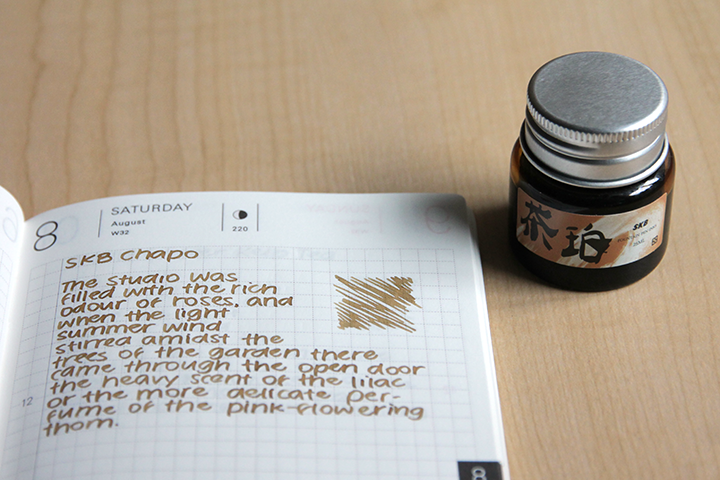 8
SATURDAY
August
W32
220
SKB Chapo
The studio was
filled with the rich
odour of roses, and
when the light
summer wind
stirred amidst the
trees of the garden there
came through the open door
the heavy scent of the lilac
or the more delicate per-
fume of the pink-flowering
thorn.
12
8
茶珀
SKB